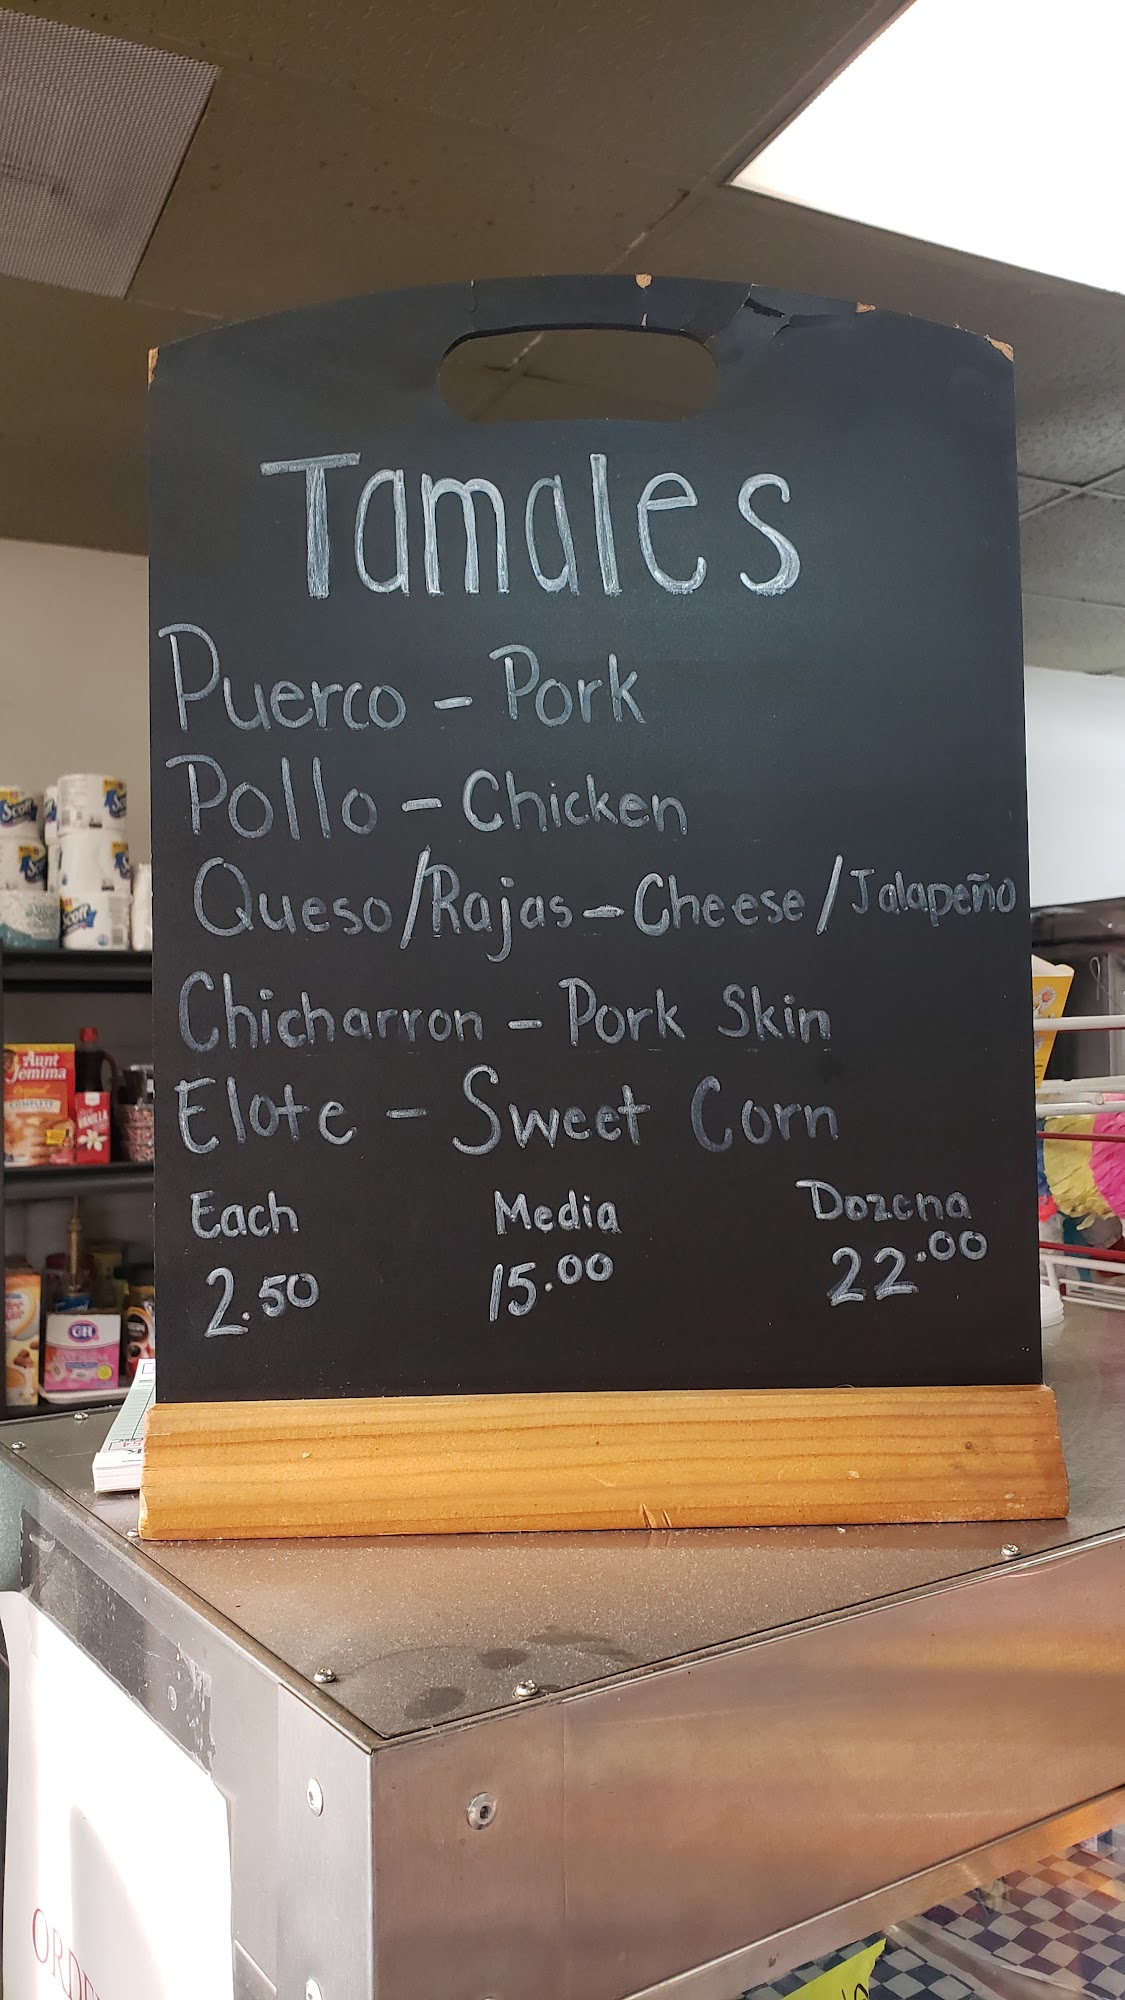 Tamales
Puerco - Pork
Pollo - Chicken
Queso/Rajas - Cheese/Jalapeño
Chicharron - Pork Skin
Elote - Sweet Corn
Each Media Dozena
2.50 15.00 22.00
Scott
Scott
Aunt
Jemima
Original
COMPLETE
VANILLA
C&H